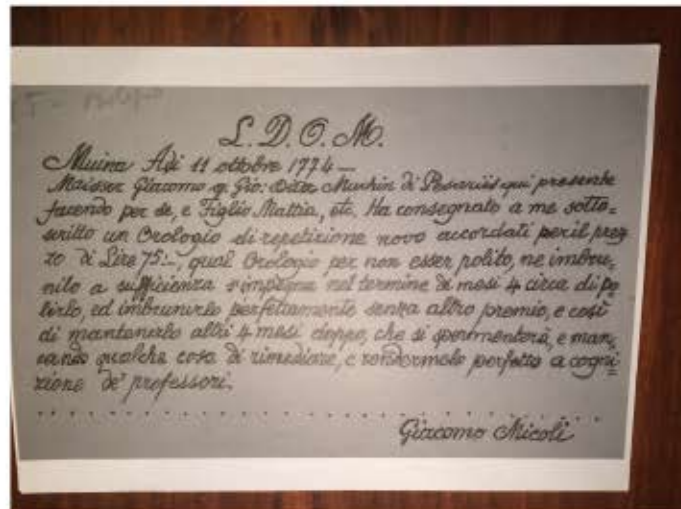 L. D. O. M.
Muina Adi 11 ottobre 1774 —
Maisser Giacomo q. Gio: Batta Machin di Pesariis qui presente
facendo per se, e Figlio Mattia, etc. Ha consegnato a me sotto=
scritto un Orologio di repetizione novo accordati per il prez
zo di Lire 75:-, qual Orologio per non esser polito, ne imbru=
nito a sufficienza s'impegna nel termine di mesi 4 circa di po
lirlo, ed imbrunirlo perfettamente senza altro premio, e così
di mantenerlo altri 4 mesi doppo, che si sperimenterà, e man=
cando qualche cosa di rimediare, e rendermelo perfetto a cogni
zione de' professori.
Giacomo Micoli